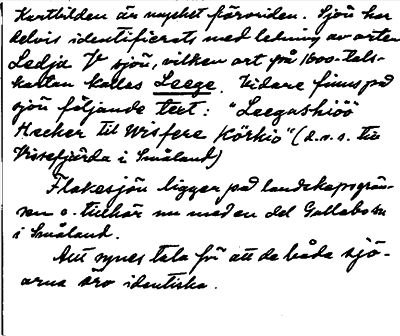 Kartbilden är mycket förvriden. Sjön har
delvis identifierats med ledning av orten
Ledja V sjön, vilken ort på 1600-tals-
kartan kalles Leege. Vidare finns på
sjön följande text: "Leegashiöö
Hecker til Wisfere Körkio" (d.v.s. till
Vissefjärda i Småland)
Flakesjön ligger på landskapsgrän-
sen o. tillhör nu med en del Gullabo sn
i Småland.
Allt synes tala för att de båda sjö-
arna äro identiska.